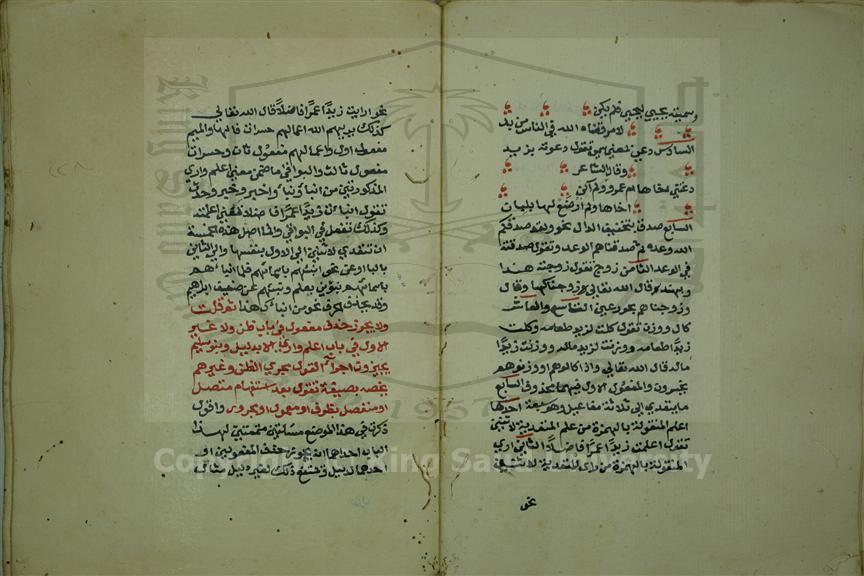 وسميته يحيى ليحيى فلم يكن
لامر قضاه الله في الناس من بد
السادس دعى بمعنى سمى تقول دعوته بزيد
وقال الشاعر
دعتني اخاها ام عمرو ولم اكن
اخاها ولم ارضع لها بلبان
السابع صدق بتخفيف الدال نحو ولقد صدقكم
الله وعده ثم صدقناهم الوعد وتقول صدقته
في الوعد الثامن زوج تقول زوجته هندا
وبهند قال الله تعالى زوجناكها وقال
وزوجناهم بحور عين التاسع والعاشر
كال ووزن تقول كلت لزيد طعامه وكلت
زيدا طعامه ووزنت لزيد ماله ووزنت زيدا
ماله قال الله تعالى واذا كالوهم او وزنوهم
يخسرون والمفعول الاول فيهما محذوف السابع
ما يتعدى الى ثلاثة مفاعيل وهو سبعة احدها
اعلم المنقولة بالهمزة من علم المتعدية لاثنين
تقول اعلمت زيدا عمرا فاضلا الثاني ارى
المنقولة بالهمزة من راى المتعدية لاثنين
نحو
نحو ارايت زيدا عمرا فاضلا قال الله تعالى
كذلك يريهم الله اعمالهم حسرات فالهاء والميم
مفعول اول واعمالهم مفعول ثان وحسرات
مفعول ثالث والبواقي ما ضمن معنى اعلم وارى
المذكورتين من انبا ونبا واخبر وخبر وحدث
تقول انبات زيدا عمرا فاضلا بمعنى اعلمته
وكذلك تفعل في البواقي وانما اصل هذه الخمسة
ان تتعدى لاثنين الى الاول بنفسها والى الثاني
بالبا او عن نحو انبئهم باسمائهم فلما انباهم
باسمائهم نبؤني بعلم ونبئهم عن ضيف ابراهيم
وقد يحذف الحرف نحو من انباك هذا ثم قلت
ولا يجوز حذف مفعول في باب ظن ولا غير
الاول في باب اعلم وارى الا بدليل وبنو سليم
يجيزون اجراء القول مجرى الظن وغيرهم
يخصه بصيغة تقول بعد استفهام متصل
او منفصل بظرف او معمول او مجرور واقول
ذكرت في هذا الموضع مسئلتين متممتين لهذا
الباب احداهما انه يجوز حذف المفعولين او
احدهما لدليل ويمتنع ذلك لغير دليل مثال
Copyright © King Saud University
1957